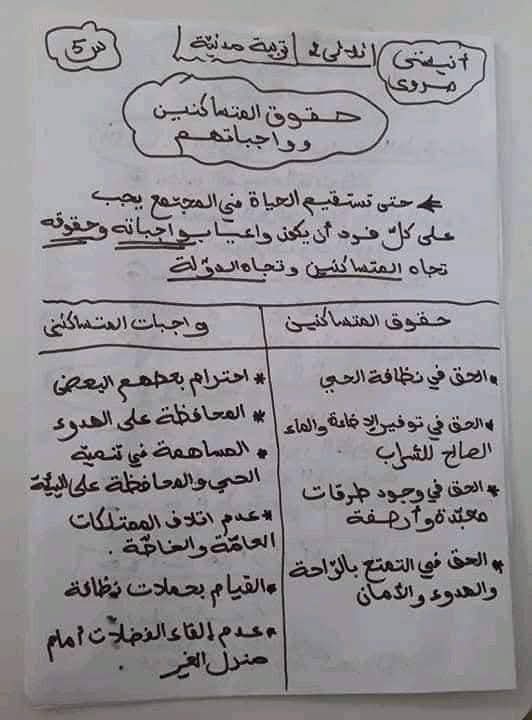 أنيستي
مروى
ثلاثي 2 | تربية مدنيّة
س5
حقوق المتساكنين
وواجباتهم
حتى تستقيم الحياة في المجتمع يجب
على كلّ فرد أن يكون واعيا بواجباته وحقوقه
تجاه المتساكنين وتجاه الدّولة
حقوق المتساكنين
* الحق في نظافة الحي
* الحق في توفير الإضاءة والماء
الصالح للشراب
* الحق في وجود طرقات
معبّدة وأرصفة
* الحق في التمتع بالرّاحة
والهدوء والأمان
واجبات المتساكني
* احترام بعضهم البعض
* المحافظة على الهدوء
* المساهمة في تنمية
الحي والمحافظة على البيئة
* عدم اتلاف الممتلكات
العامّة والخاصّة.
* القيام بحملات نظافة
* عدم إلقاء الفضلات أمام
منزل الغير